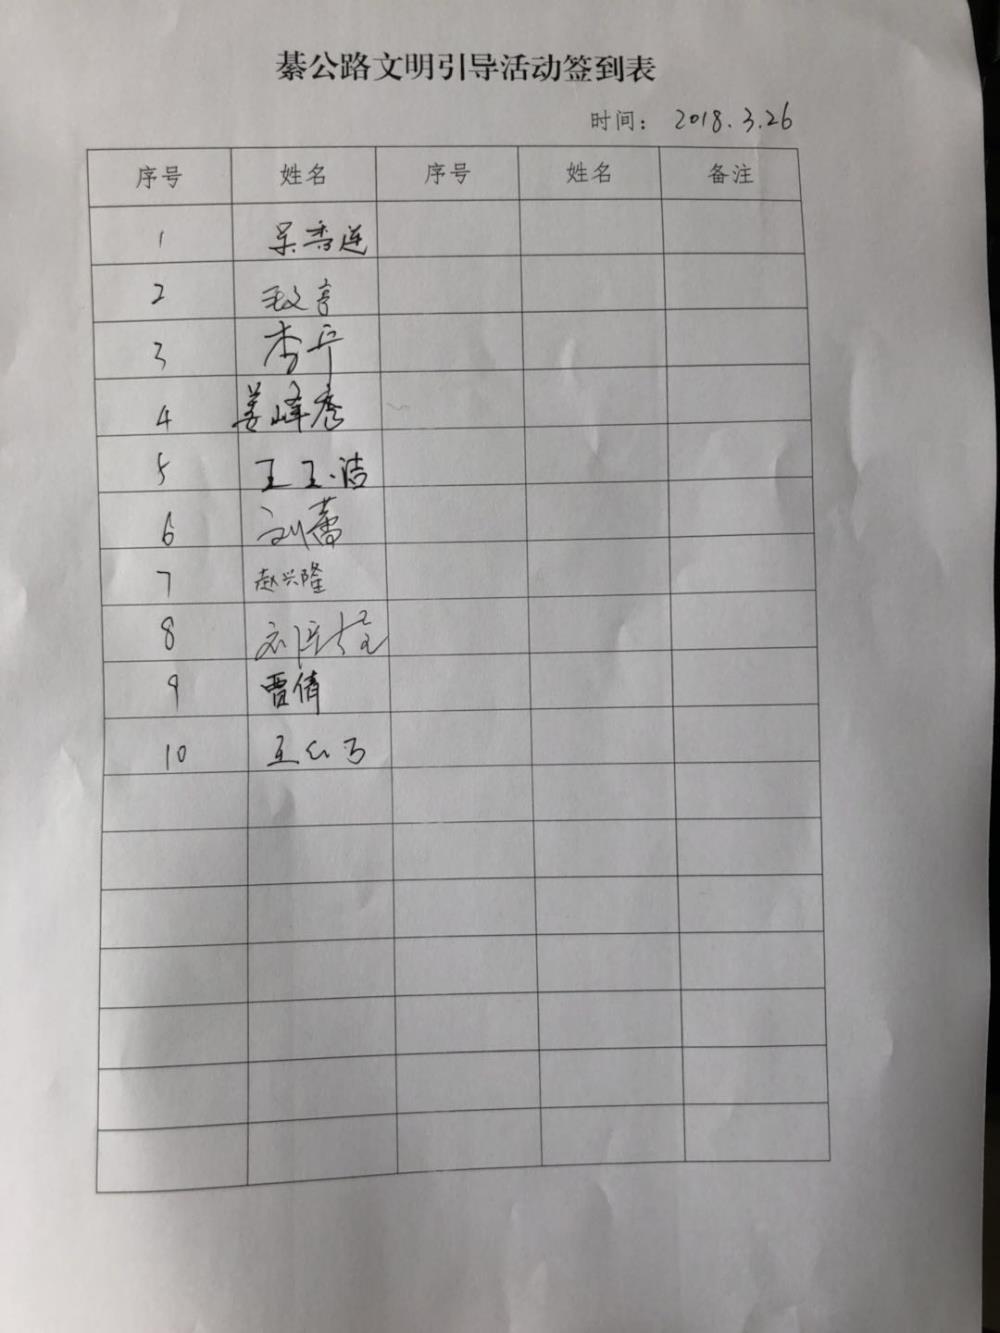 綦公路文明引导活动签到表
时间： 2018.3.26
序号 姓名 序号 姓名 备注
1 吴秀莲
2
3 李平
4 姜峰彦
5 王玉洁
6 刘蕾
7 赵兴隆
8 刘
9 贾倩
10 王